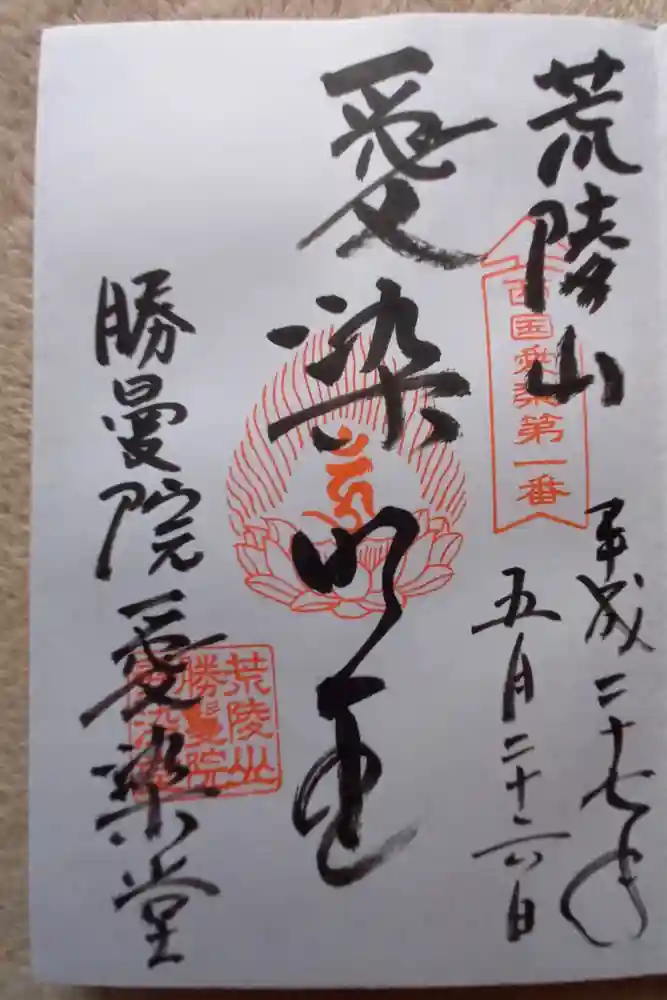 荒陵山
西国愛染第一番
平成二十七年
五月二十六日
愛染明王
勝曼院愛染堂
荒陵山
勝曼院
愛染堂